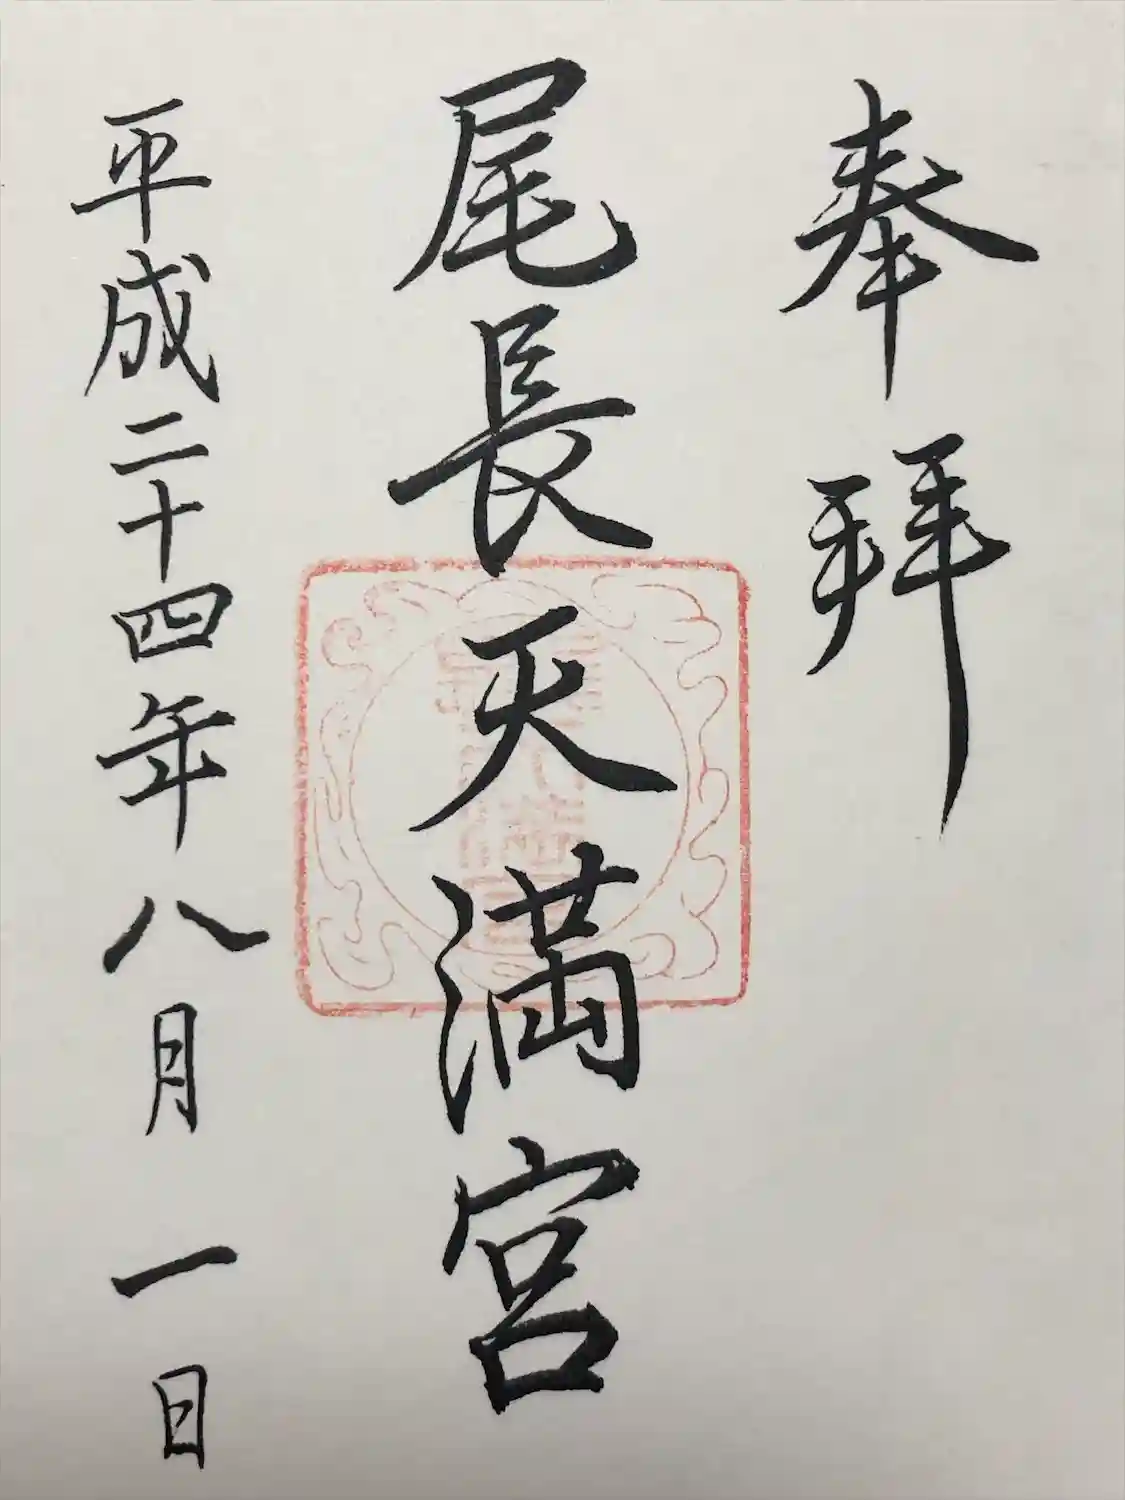 奉拜
尾長天満宮
平成二十四年八月一日